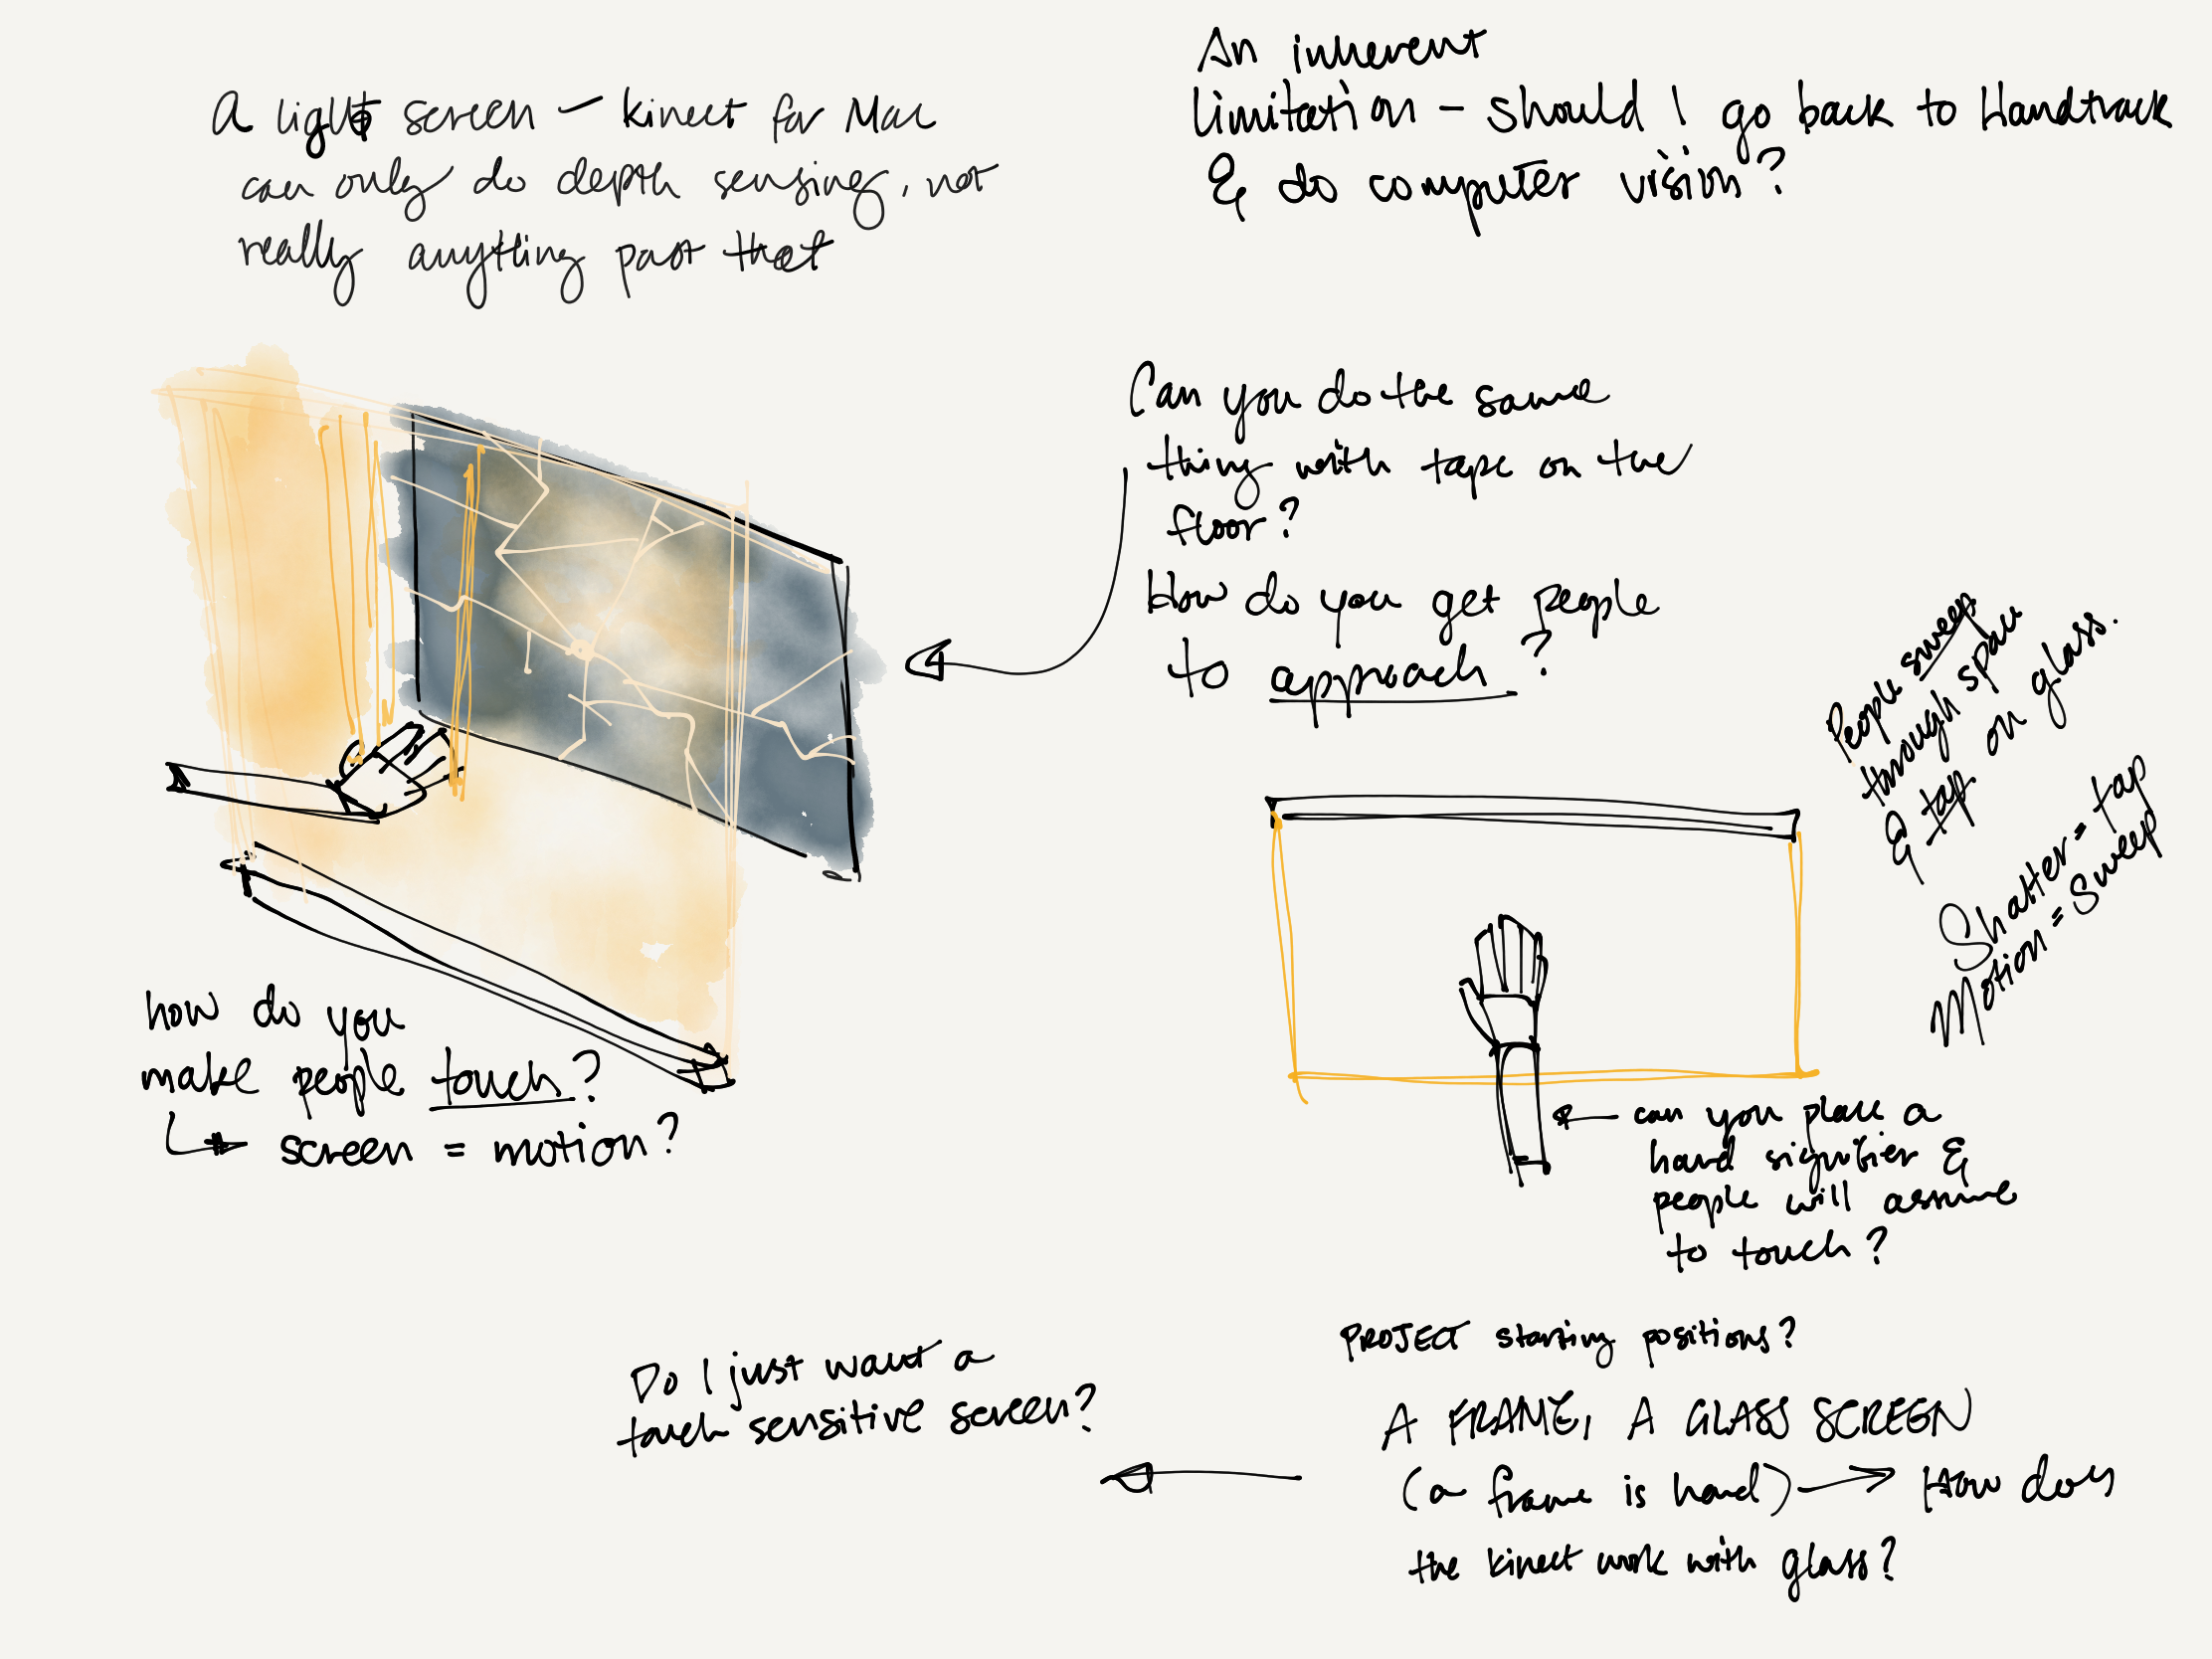 A light screen – kinect for Mac
can only do depth sensing, not
really anything past that
An inherent
limitation – should I go back to Handtrack
& do computer vision?
Can you do the same
thing with tape on the
floor?
How do you get people
to approach?
People sweep
through space
& tap on glass.
Shatter = tap
Motion = Sweep
how do you
make people touch?
screen = motion?
can you place a
hand signifier &
people will assume
to touch?
PROJECT starting positions?
A FRAME, A GLASS SCREEN
(a frame is hard) → How does
the kinect work with glass?
Do I just want a
touch sensitive screen?